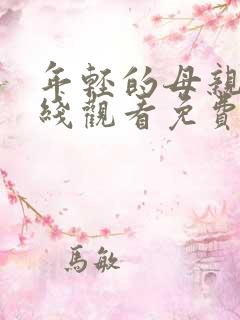 年輕的母親
綫觀看免費
馬敏